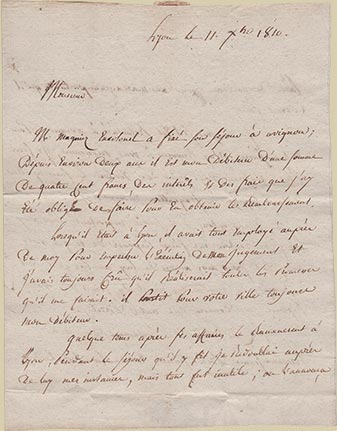 Lyon le 11 Xbre 1810.
Monsieur
Mr Magniez Ravilouel a fixé Son Séjour à avignon;
Depuis Environ deux ans il est mon Débiteur D'une Somme
De quatre cent francs des intérêts Et des frais que j'ay
Eté obligé De faire pour En obtenir le Remboursement.
Lorsqu'il Etait à Lyon il avait tout Employé auprès
De moy pour Suspendre l'Exécution De mon Jugement Et
j'avais toujours Cru qu'il Réaliserait toutes les promesses
qu'il me faisait. il partit pour votre Ville toujours
mon débiteur.
quelque tems après Ses affaires le Ramenerent à
Lyon, Pendant le Séjour qu'il y fit Je Redoublai auprès
de luy mes instances, mais tout fut inutile;